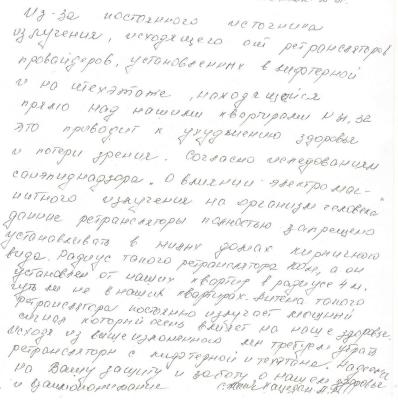 Из-за постоянного источника
излучения, исходящего от ретрансляторов
провайдеров, установленных в лифтерной
и на техэтаже, находящейся
прямо над нашими квартирами за
это приводит к ухудшению здоровья
и потери зрения. Согласно иследованиям
санэпиднадзора "О влиянии электромаг-
нитного излучения на организм человека"
данные ретрансляторы полностью запрещено
устанавливать в жилых домах кирпичного
вида. Радиус такого ретранслятора а он
установлен от наших квартир в радиусе 4 м.
чуть ли не в наших квартирах. Антена такого
ретранслятора постоянно излучает мощный
сигнал который очень влияет на наше здоровье.
Исходя из вышеизложенного мы требуем убрать
ретрансляторы с лифтерной и техэтажа. Надеемся
на Вашу защиту и заботу о нашем здоровье
и взаимопонимание